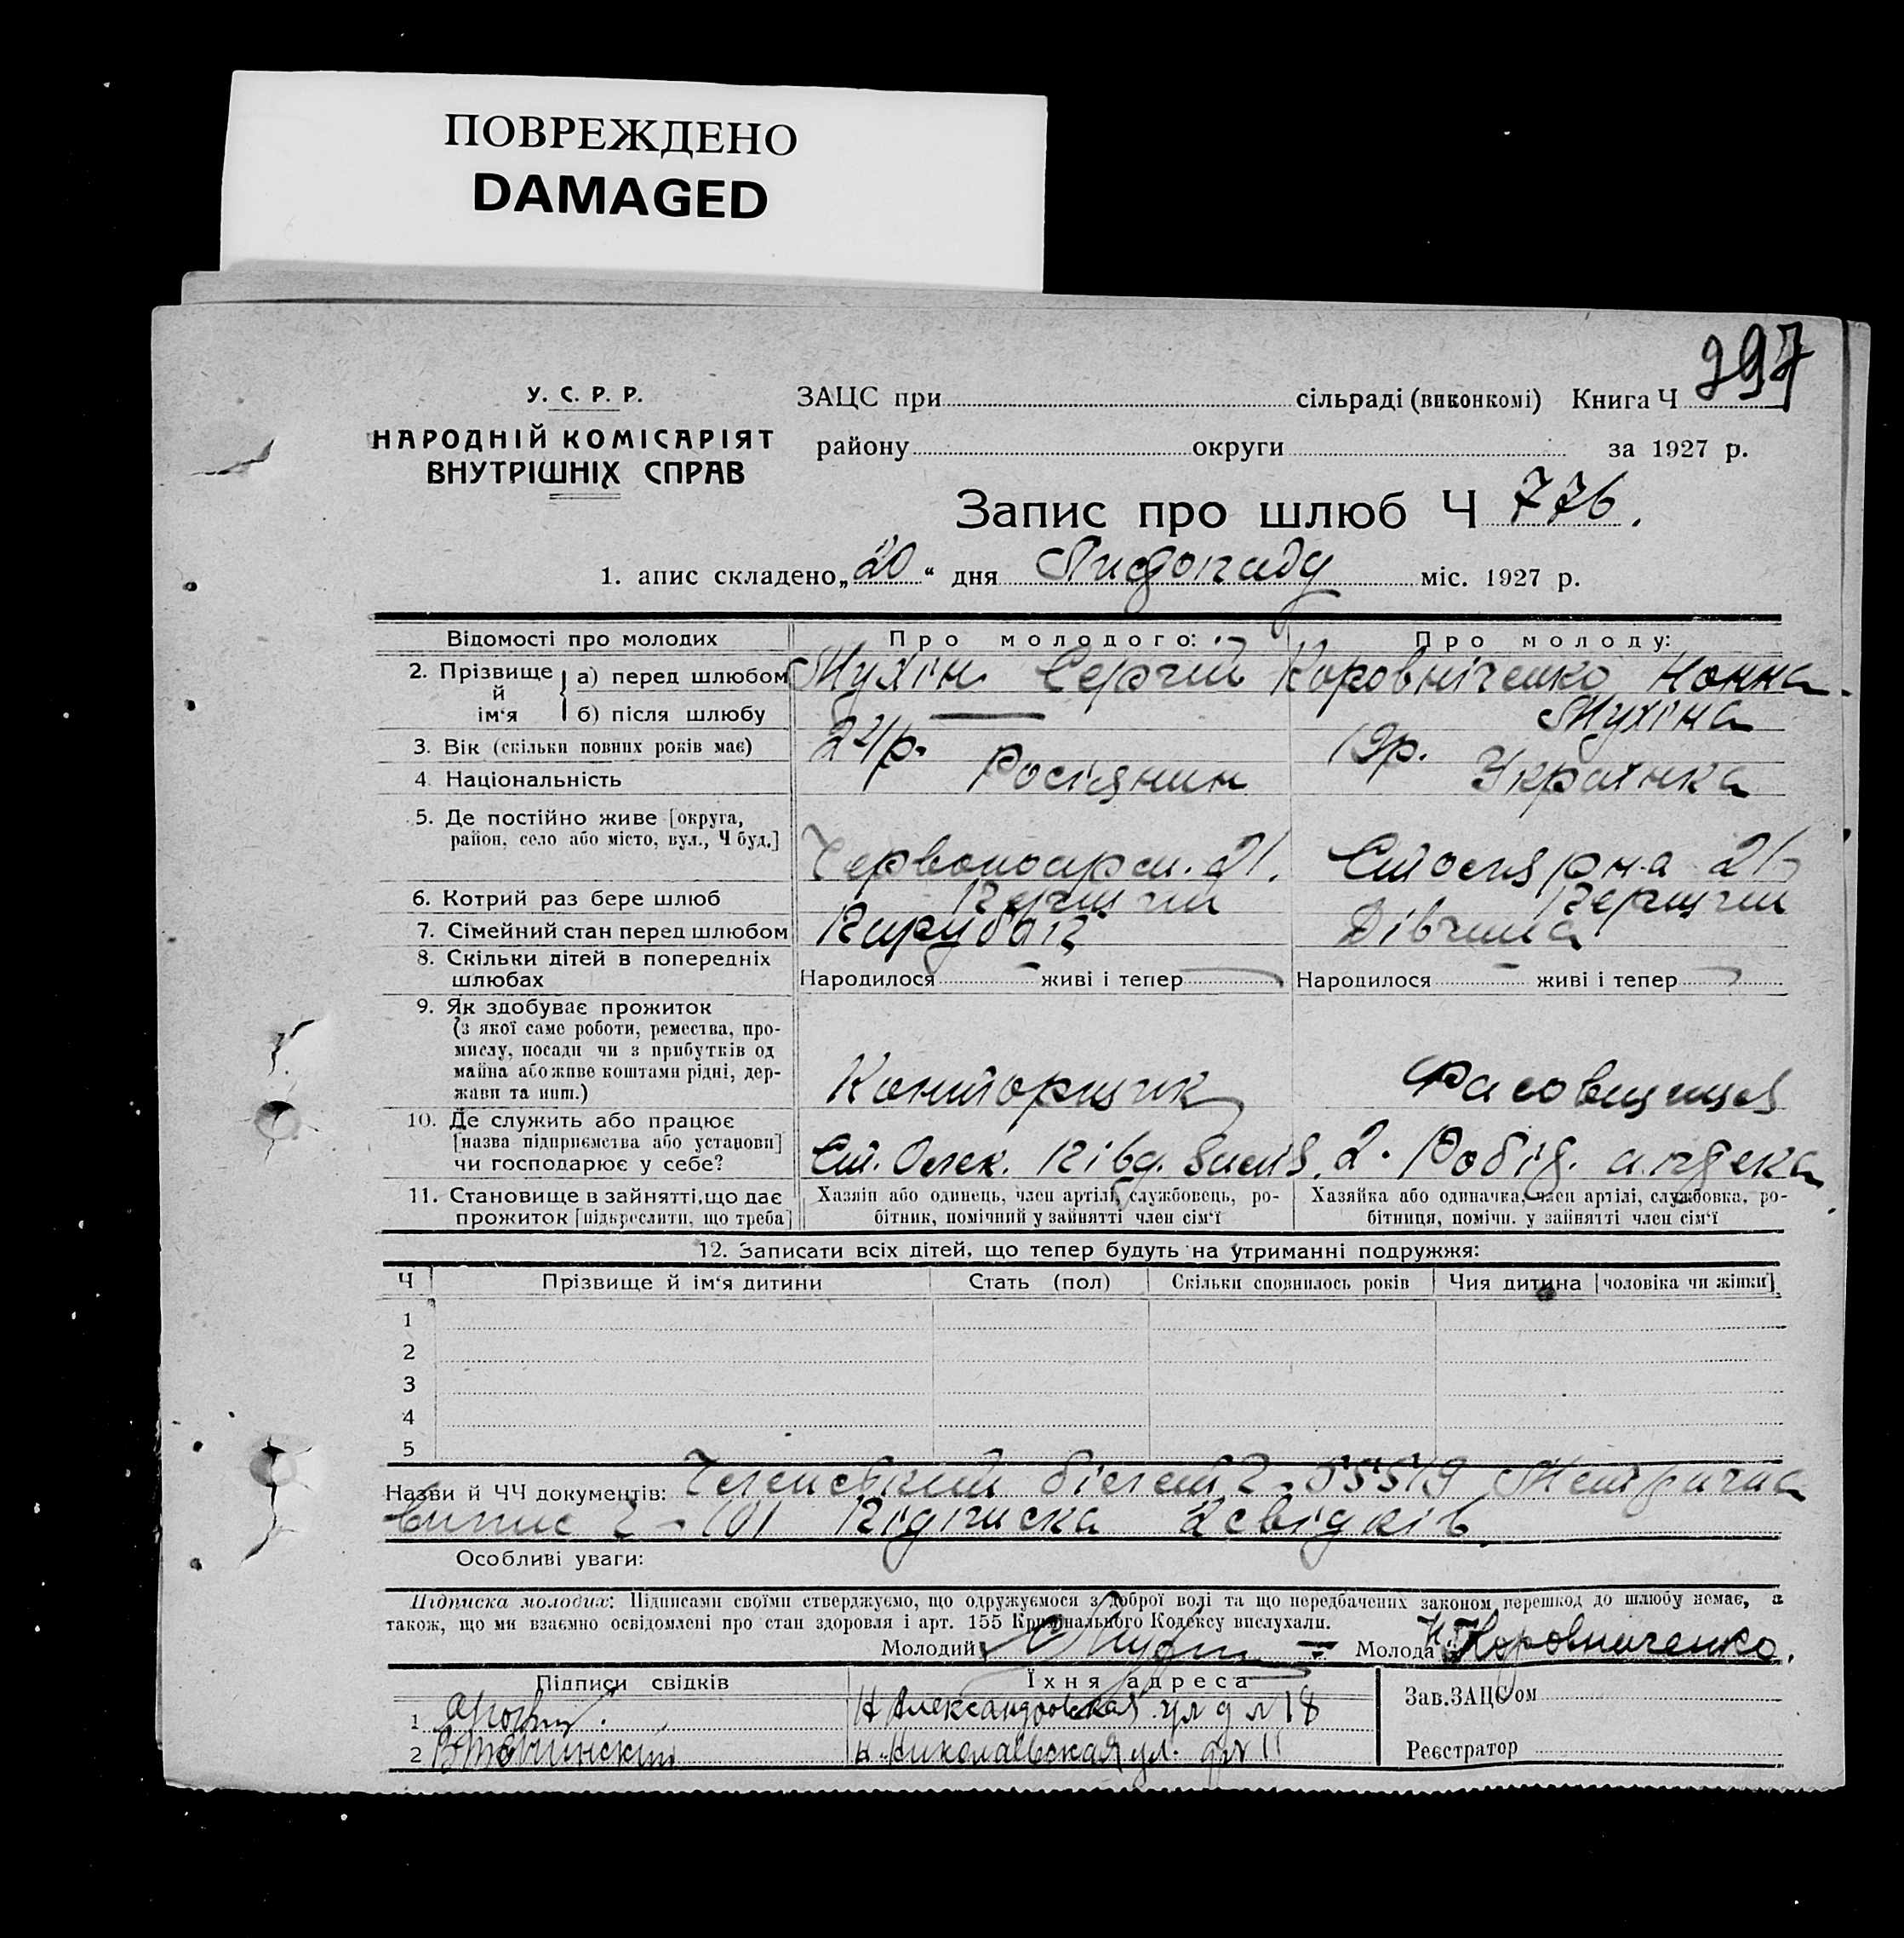 ПОВРЕЖДЕНО
DAMAGED
У. С. Р. Р.
НАРОДНІЙ КОМІСАРІЯТ
ВНУТРІШНІХ СПРАВ
ЗАЦС при сільраді (виконкомі) Книга Ч 397
району округи за 1927 р.
Запис про шлюб Ч 776.
1. апис складено „20“ дня Листопаду міс. 1927 р.
Відомості про молодих Про молодого: Про молоду:
2. Прізвище й ім‘я а) перед шлюбом Мухін Сергій Коровніченко Нонна
б) після шлюбу — Мухіна
3. Вік (скільки повних років має) 22/р. 19р.
4. Національність Росіянин Українка
5. Де постійно живе [округа,
район, село або місто, вул., Ч буд.] Червоноарм. 21. Столярна 21
6. Котрий раз бере шлюб Перший Перший
7. Сімейний стан перед шлюбом Парубок Дівчина
8. Скільки дітей в попередніх
шлюбах Народилося — живі і тепер — Народилося — живі і тепер —
9. Як здобуває прожиток
(з якої саме роботи, ремества, про-
мислу, посади чи з прибутків од
майна або живе коштами рідні, дер-
жави та инш.) Конторщик Фасовщиця
10. Де служить або працює
[назва підприємства або установи]
чи господарює у себе? Ст. Олек. Півд. 2. Робід. аптека
11. Становище в зайнятті, що дає
прожиток [підкреслити, що треба]
Хазяїн або одинець, член артілі, службовець, ро-
бітник, помічний у зайнятті член сім‘ї
Хазяйка або одиначка, член артілі, службовка, ро-
бітниця, помічн. у зайнятті член сім‘ї
12. Записати всіх дітей, що тепер будуть на утриманні подружжя:
Ч Прізвище й ім‘я дитини Стать (пол) Скільки сповнилось років Чия дитина [чоловіка чи жінки]
1
2
3
4
5
Назви й ЧЧ документів: Членський білет Метрична
випис Підписка 2 свідків
Особливі уваги:
Підписка молодих: Підписами своїми стверджуємо, що одружуємося з доброї волі та що передбачених законом перешкод до шлюбу немає, а
також, що ми взаємно освідомлені про стан здоровля і арт. 155 Кримінального Кодексу вислухали.
Молодий Молода Коровниченко.
Підписи свідків Їхня адреса Зав. ЗАЦС‘ом
1 Н Александровская ул д № 18
2 Н. Николаевская ул. д № 11 Реєстратор